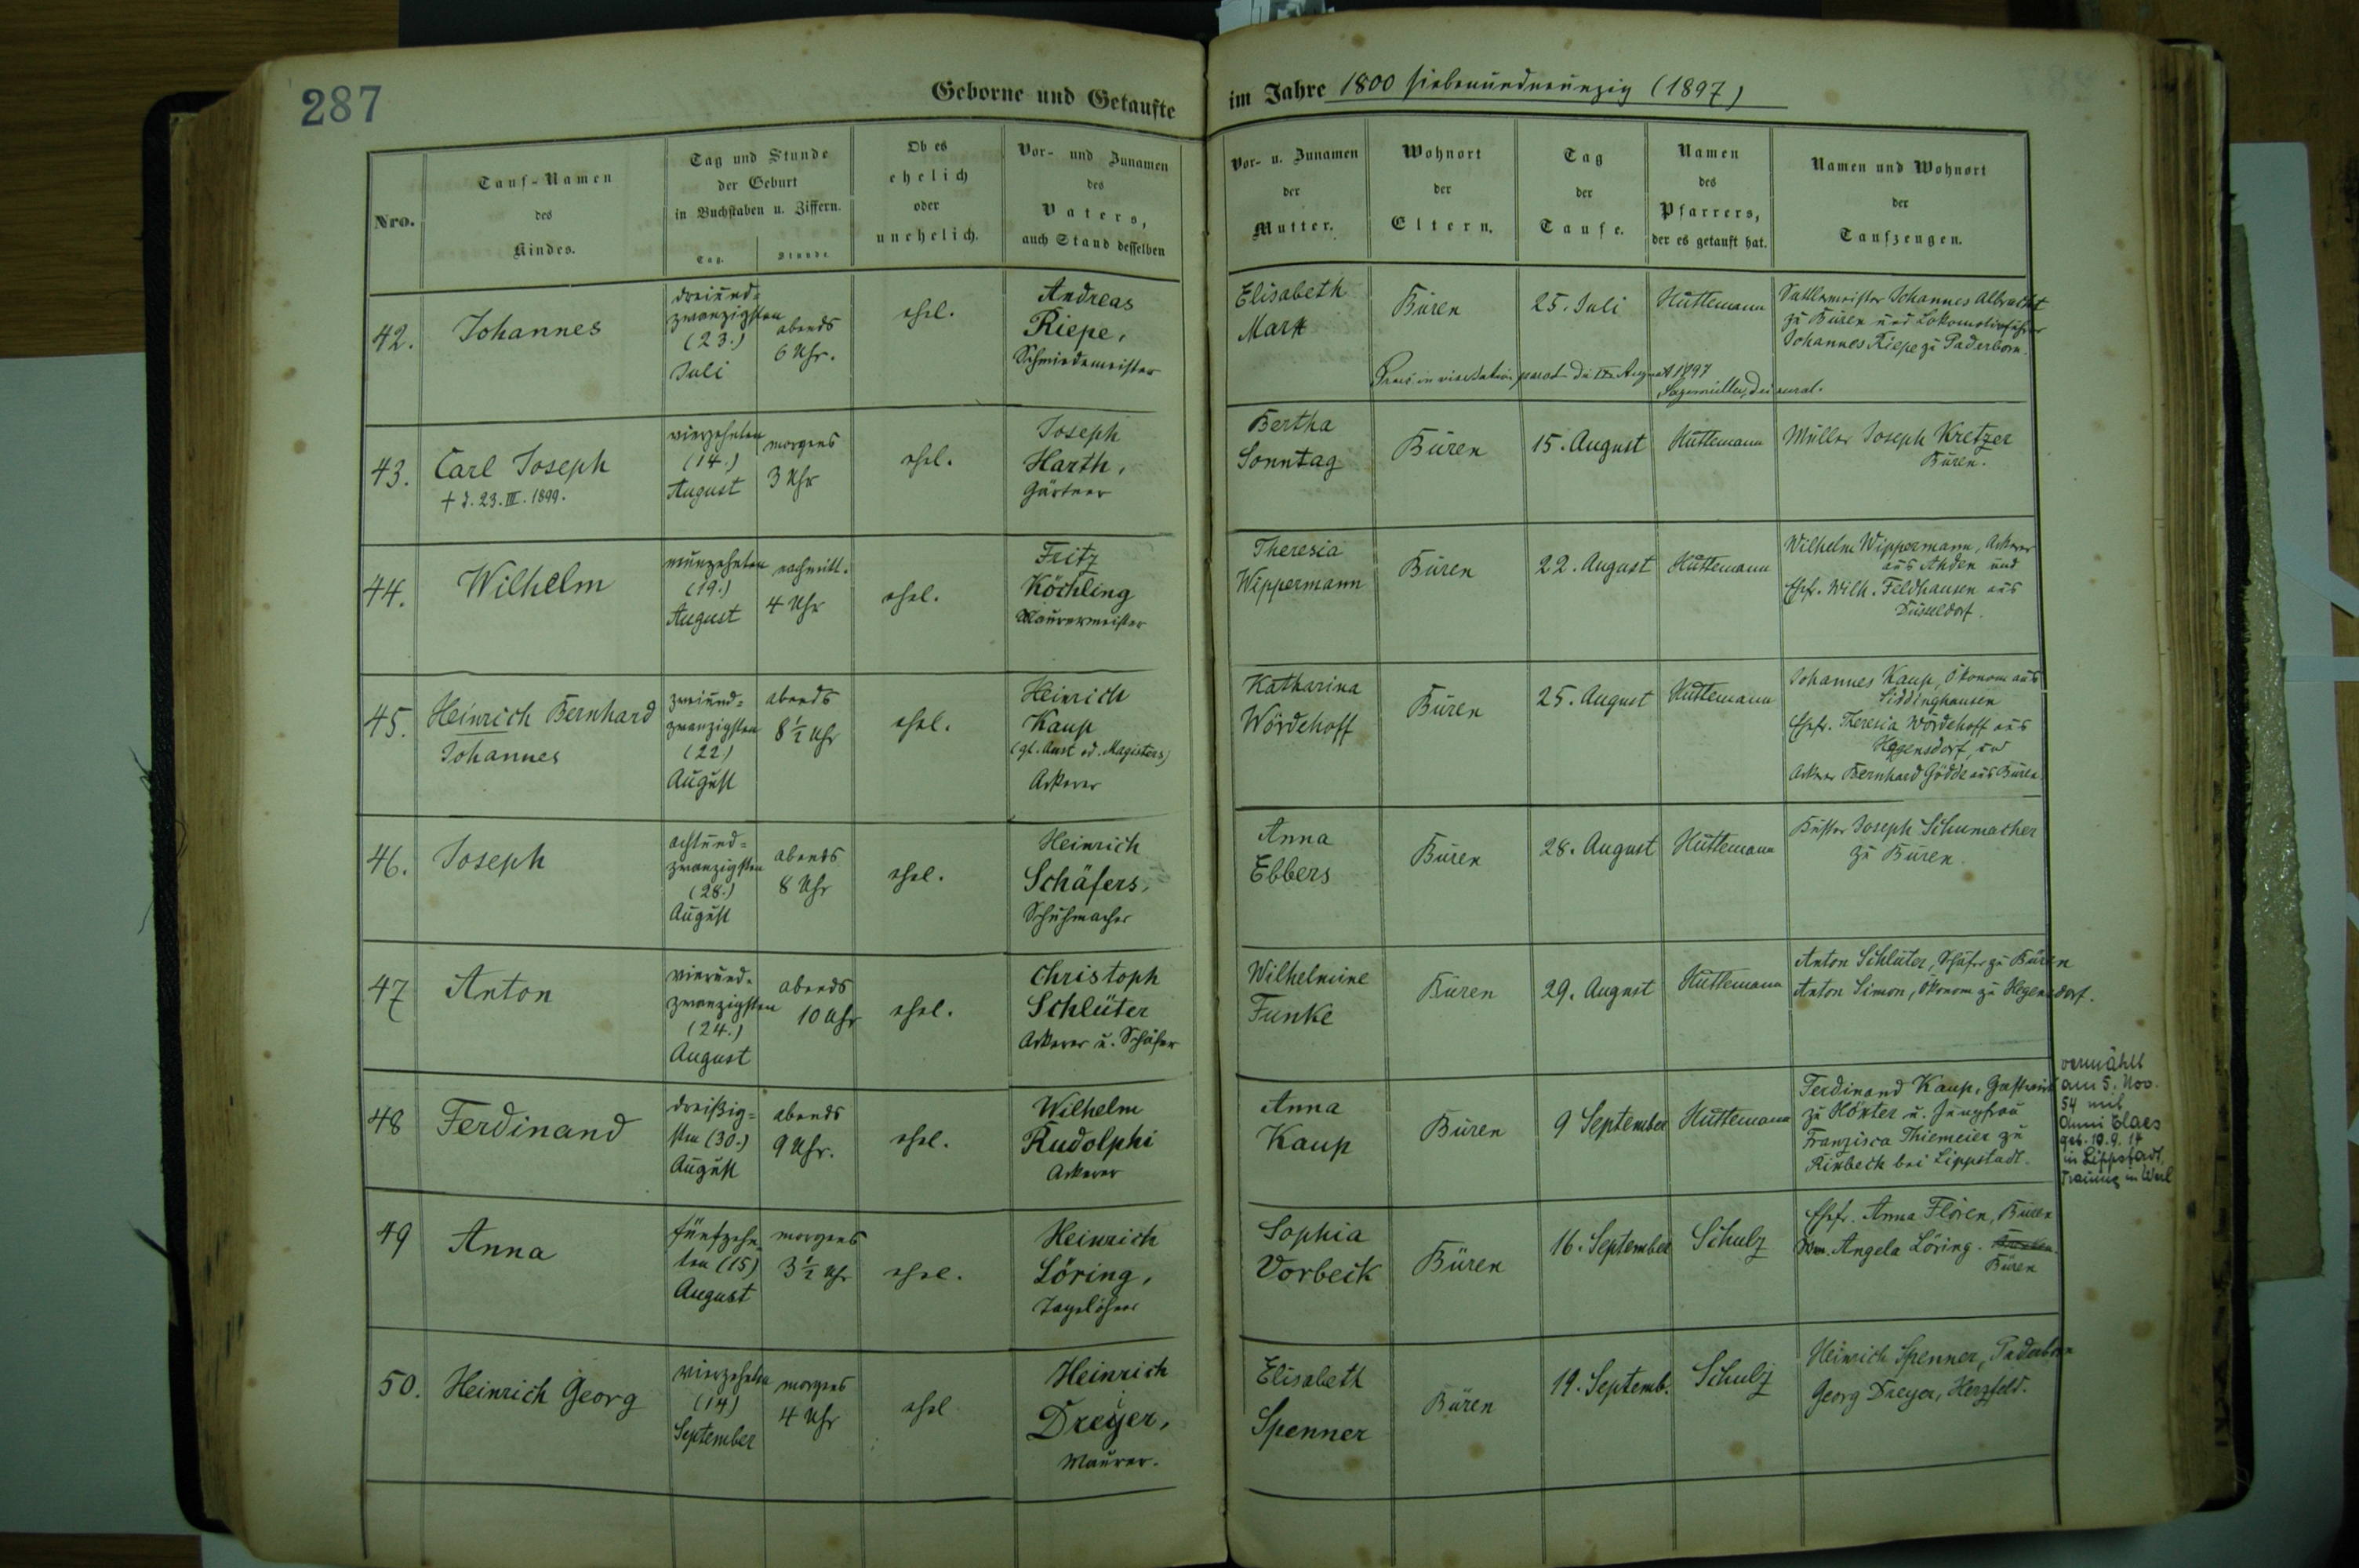 287
Geborne und Getaufte
im Jahre 1800 siebenundneunzig (1897)
Nro.
Tauf-Namen
des
Kindes.
Tag und Stunde
der Geburt
in Buchstaben u. Ziffern.
Tag.
Stunde
Ob es
ehelich
oder
unehelich.
Vor- und Zunamen
des
Vaters,
auch Stand desselben
Vor- u. Zunamen
der
Mutter.
Wohnort
der
Eltern.
Tag
der
Taufe.
Namen
des
Pfarrers,
der es getauft hat.
Namen und Wohnort
der
Taufzeugen.
42.
Johannes
dreiund=
zwanzigsten
(23.)
Juli
abends
6 Uhr.
ehel.
Andreas
Riepe,
Schmiedemeister
Elisabeth
Marx
Büren
25. Juli
Hüttemann
Sattlermeister Johannes Albracht
zu Büren und Lokomotivführer
Johannes Riepe zu Paderborn.
August 1897
43.
Carl Joseph
† d. 23. III. 1899.
vierzehnten
(14.)
August
morgens
3 Uhr
ehel.
Joseph
Harth,
Gärtner
Bertha
Sonntag
Büren
15. August
Hüttemann
Müller Joseph Kretzer
Büren.
44.
Wilhelm
neunzehnten
(19.)
August
nachmitt.
4 Uhr
ehel.
Fritz
Köchling
Maurermeister
Theresia
Wippermann
Büren
22. August
Hüttemann
Wilhelm Wippermann, Ackerer
aus Ahden und
Ehefr. Wilh. Feldhausen aus
Düsseldorf.
45.
Heinrich Bernhard
Johannes
zweiund=
zwanzigsten
(22)
August
abends
8 1/2 Uhr
ehel.
Heinrich
Kaup
(gt. Aust od. Magisters)
Ackerer
Katharina
Wördehoff
Büren
25. August
Hüttemann
Johannes Kaup, Ökonom aus
Siddinghausen
Ehefr. Theresia Wördehoff aus
Hegensdorf, und
Ackerer Bernhard Gödde aus Büren
46.
Joseph
achtund=
zwanzigsten
(28.)
August
abends
8 Uhr
ehel.
Heinrich
Schäfers,
Schuhmacher
Anna
Ebbers
Büren
28. August
Hüttemann
Küster Joseph Schumacher
zu Büren.
47
Anton
vierund=
zwanzigsten
(24.)
August
abends
10 Uhr
ehel.
Christoph
Schlüter
Ackerer u. Schäfer
Wilhelmine
Funke
Büren
29. August
Hüttemann
Anton Schlüter, Schäfer zu Büren
Anton Simon, Ökonom zu Hegensdorf.
48
Ferdinand
dreißig=
sten (30.)
August
abends
9 Uhr.
ehel.
Wilhelm
Rudolphi
Ackerer
Anna
Kaup
Büren
9 September
Hüttemann
Ferdinand Kaup, Gastwirt
zu Höxter u. Jungfrau
Franzisca Thiemeier zu
Rixbeck bei Lippstadt.
vermählt
am 5. Nov.
54 mit
Anni Claes
geb. 10.9.14
in Lippstadt,
Trauung in Werl
49
Anna
fünfzehn
ten (15)
August
morgens
3 1/2 Uhr
ehel.
Heinrich
Löring,
Tagelöhner
Sophia
Vorbeck
Büren
16. September
Schulz
Ehefr. Anna Floren, Büren
Ww. Angela Löring.
Büren
50.
Heinrich Georg
vierzehnten
(14)
September
morgens
4 Uhr
ehel
Heinrich
Dreyer,
Maurer.
Elisabeth
Spenner
Büren
19. Septemb.
Schulz
Heinrich Spenner, Paderborn
Georg Dreyer, Herzfeld.